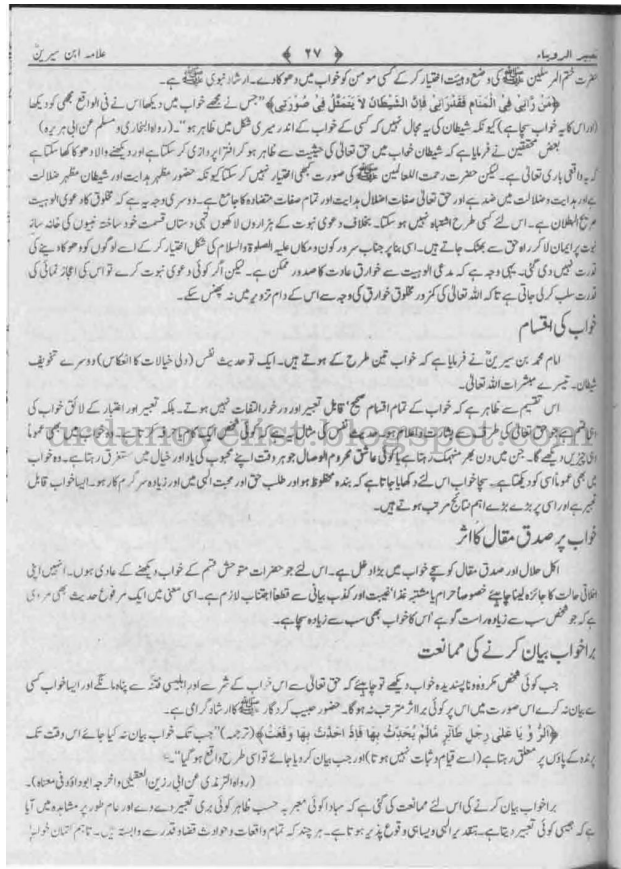 تعبیر الرویاء ﴿ ۲۷ ﴾ علامہ ابن سیرینؒ
حضرت ختم المرسلین ﷺ کی وضع و ہیئت اختیار کر کے کسی مومن کو خواب میں دھوکا دے۔ ارشاد نبوی ﷺ ہے۔
﴿مَنْ رَّاٰنِیْ فِی الْمَنَامِ فَقَدْرَاٰنِیْ فَاِنَّ الشَّیْطَانَ لَا یَتَمَثَّلُ فِیْ صُوْرَتِیْ﴾ ”جس نے مجھے خواب میں دیکھا اس نے فی الواقع مجھی کو دیکھا
(اور اس کا یہ خواب سچا ہے) کیونکہ شیطان کی یہ مجال نہیں کہ کسی کے خواب کے اندر میری شکل میں ظاہر ہو“۔ (رواہ البخاری و مسلم عن ابی ہریرہ)
بعض محققین نے فرمایا ہے کہ شیطان خواب میں حق تعالیٰ کی حیثیت سے ظاہر ہو کر افترا پردازی کر سکتا ہے اور دیکھنے والا دھوکا کھا سکتا ہے
کہ یہ واقعی باری تعالیٰ ہے۔ لیکن حضرت رحمت اللعالمین ﷺ کی صورت کبھی اختیار نہیں کر سکتا کیونکہ حضور مظہر ہدایت اور شیطان مظہر ضلالت
ہے اور ہدایت و ضلالت میں ضد ہے اور حق تعالیٰ صفات اضلال ہدایت اور تمام صفات متضادہ کا جامع ہے۔ دوسری وجہ یہ ہے کہ مخلوق کا دعوی الوہیت
صریح البطلان ہے۔ اس لئے کسی طرح اشتباہ نہیں ہو سکتا۔ بخلاف دعوی نبوت کے ہزاروں لاکھوں تہی دستاں قسمت خود ساختہ نبیوں کی خانہ ساز
نبوت پر ایمان لا کر راہ حق سے بھٹک جاتے ہیں۔ اسی بنا پر جناب سرور کون و مکاں علیہ الصلوۃ والسلام کی شکل اختیار کر کے اسے لوگوں کو دھوکا دینے کی
قدرت نہیں دی گئی۔ یہی وجہ ہے کہ مدعی الوہیت سے خوارق عادت کا صدور ممکن ہے۔ لیکن اگر کوئی دعوی نبوت کرے تو اس کی اعجاز نمائی کی
قدرت سلب کر لی جاتی ہے تا کہ اللہ تعالیٰ کی کمزور مخلوق خوارق کی وجہ سے اس کے دام تزویر میں نہ پھنس سکے۔
خواب کی اقسام
امام محمد بن سیرینؒ نے فرمایا ہے کہ خواب تین طرح کے ہوتے ہیں۔ ایک تو حدیث نفس (دلی خیالات کا انعکاس) دوسرے تخویف
شیطان۔ تیسرے مبشرات اللہ تعالیٰ۔
اس تقسیم سے ظاہر ہے کہ خواب کے تمام اقسام صحیح‘ قابل تعبیر اور درخور التفات نہیں ہوتے۔ بلکہ تعبیر اور اعتبار کے لائق خواب کی
urdunovelist.blogspot.com
ہی چیزیں دیکھے گا۔ جن میں دن بھر منہمک رہتا ہے یا کوئی عاشق محروم الوصال جو ہر وقت اپنے محبوب کی یاد اور خیال میں مستغرق رہتا ہے۔ وہ خواب
میں بھی عموماً اسی کو دیکھتا ہے۔ سچا خواب اس لئے دکھلایا جاتا ہے کہ بندہ محظوظ ہو اور طلب حق اور محبت الٰہی میں اور زیادہ سرگرم کار ہو۔ ایسا خواب قابل
تعبیر ہے اور اسی پر بڑے بڑے اہم نتائج مرتب ہوتے ہیں۔
خواب پر صدق مقال کا اثر
اکل حلال اور صدق مقال کو سچے خواب میں بڑا دخل ہے۔ اس لئے جو حضرات متوحش قسم کے خواب دیکھنے کے عادی ہوں۔ انہیں اپنی
اخلاقی حالت کا جائزہ لینا چاہیئے خصوصاً حرام یا مشتبہ غذا‘ غیبت اور کذب بیانی سے قطعاً اجتناب لازم ہے۔ اسی معنی میں ایک مرفوع حدیث بھی مروی
ہے کہ جو شخص سب سے زیادہ راست گو ہے‘ اس کا خواب بھی سب سے زیادہ سچا ہے۔
برا خواب بیان کرنے کی ممانعت
جب کوئی شخص مکروہ و ناپسندیدہ خواب دیکھے تو چاہیئے کہ حق تعالیٰ سے اس خواب کے شر سے اور ابلیسی فتنہ سے پناہ مانگے اور ایسا خواب کسی
سے بیان نہ کرے اس صورت میں اس پر کوئی برا اثر مترتب نہ ہوگا۔ حضور حبیب کردگار ﷺ کا ارشاد گرامی ہے۔
﴿الرُّوْیَا عَلٰی رِجْلِ طَائِرٍ مَّالَمْ یُحَدِّثْ بِهَا فَاِذَ احَدَّثَ بِهَا وَقَعَتْ﴾ (ترجمہ) ”جب تک خواب بیان نہ کیا جائے اس وقت تک
پرندہ کے پاؤں پر معلق رہتا ہے (اسے قیام و ثبات نہیں ہوتا) اور جب بیان کر دیا جائے تو اسی طرح واقع ہو گیا“۔
(رواہ الترمذی عن ابی رزین العقیلی و اخرجہ ابو داؤد فی معناہ)۔
برا خواب بیان کرنے کی اس لئے ممانعت کی گئی ہے کہ مبادا کوئی معبر یہ حسب ظاہر کوئی بری تعبیر دے دے اور عام طور پر مشاہدہ میں آیا
ہے کہ جیسی کوئی تعبیر دیتا ہے۔ بتقدیر الٰہی ویسا ہی وقوع پذیر ہوتا ہے۔ ہر چند کہ تمام واقعات و حوادث قضا و قدر سے وابستہ ہیں۔ تاہم کتمان خواب